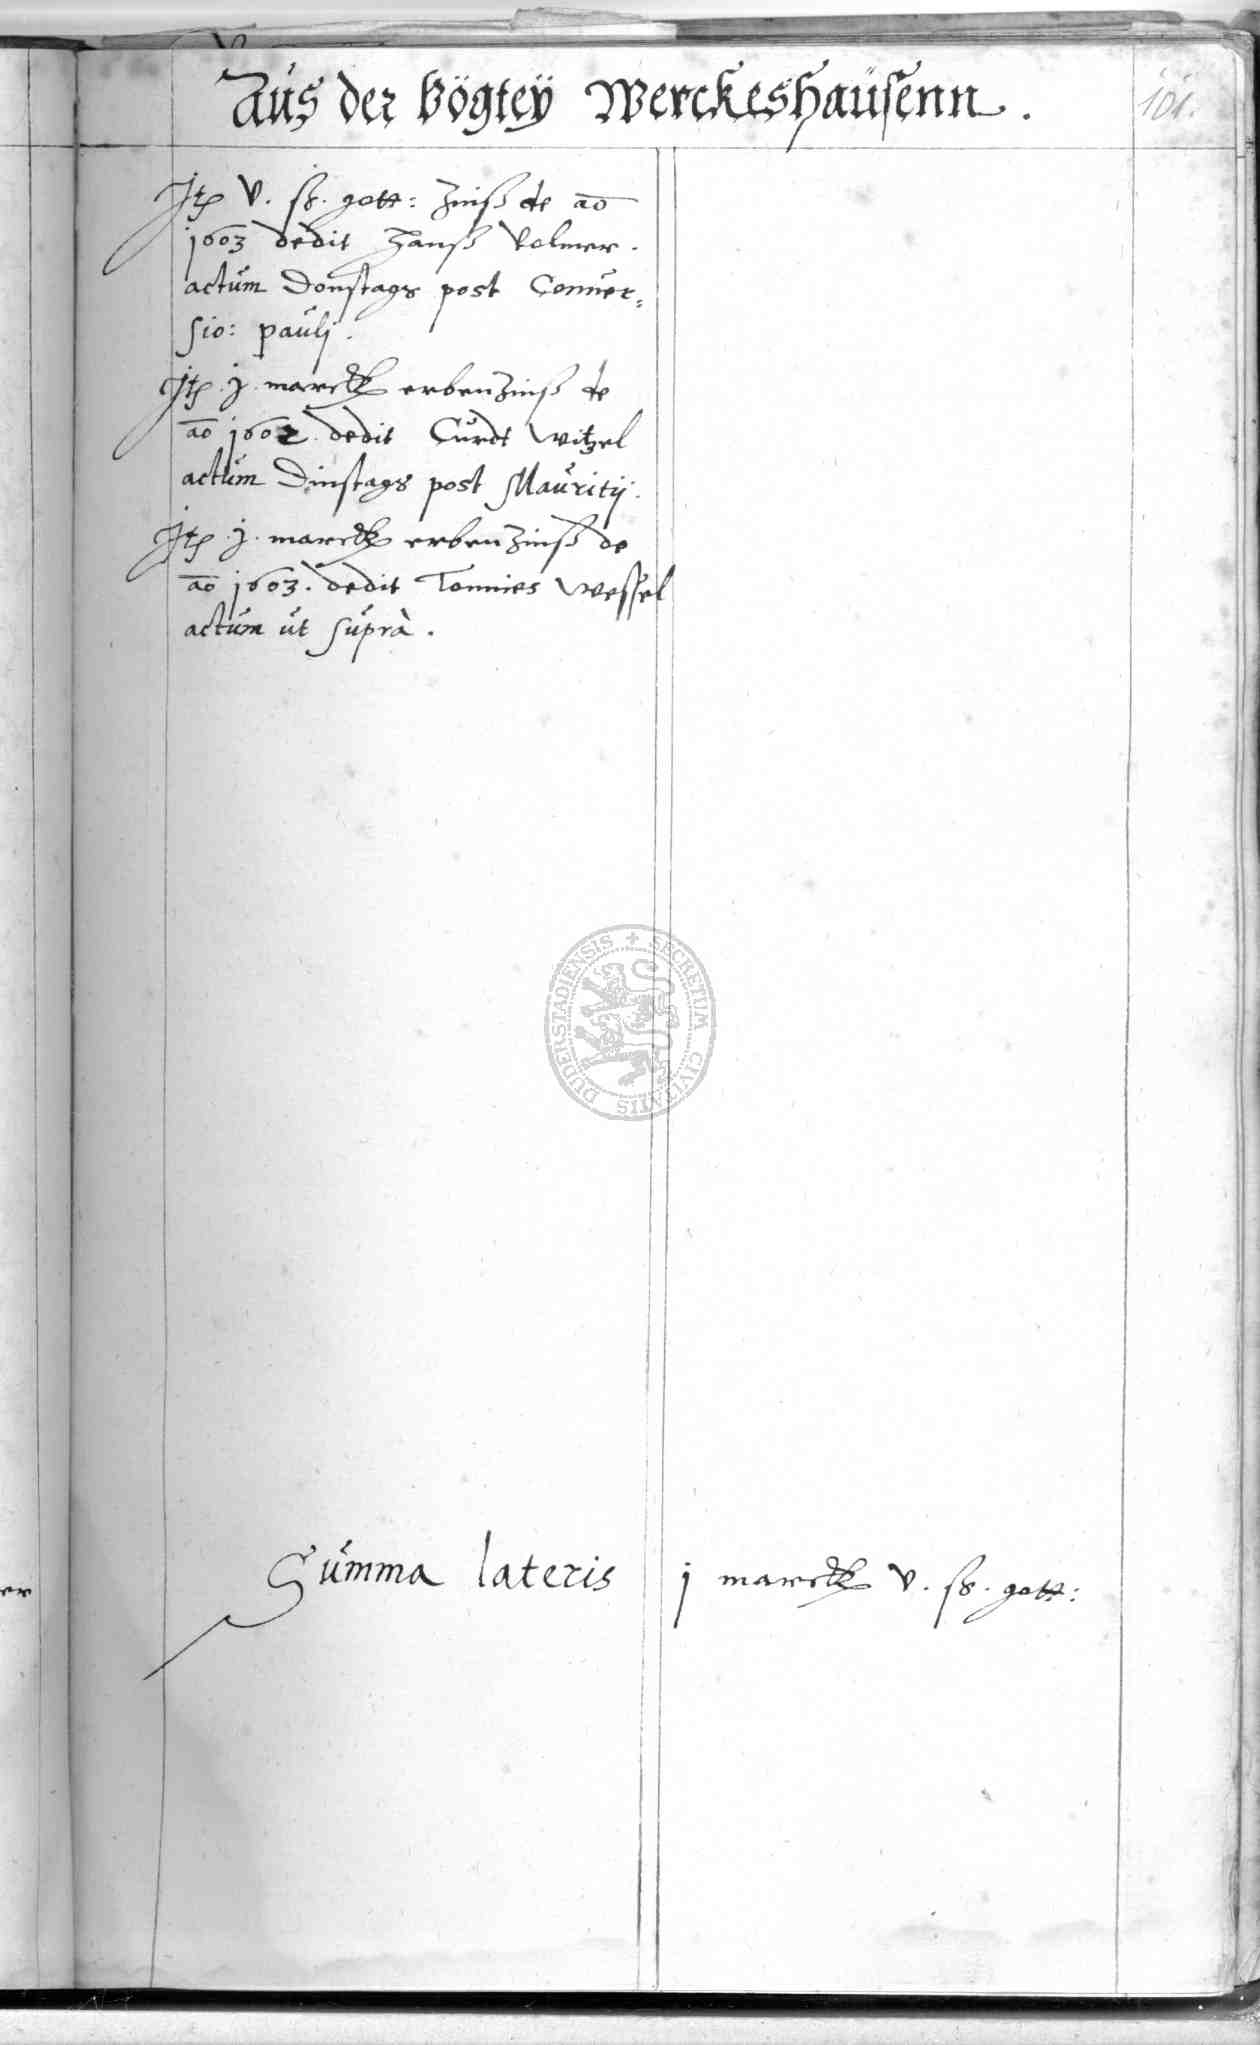 Aus der Vögtey Werckeshausenn.
101.
Itē v. ß. gott: Zinß de ao
1603 dedit Hanß Volmer.
actum Donstags post Conuer-
sio: pauli.
Itē j. marck erbenzinß de
ao 1602. dedit Curdt Witzel
actum Dinstags post Mauritij.
Itē j. marck erbenzinß de
ao 1603. dedit Tonnies Wessel
actum ut suprà.
DUDERSTADIENSIS + SECRETUM CIVITATIS
Summa lateris j marck v. ß. gott:
er